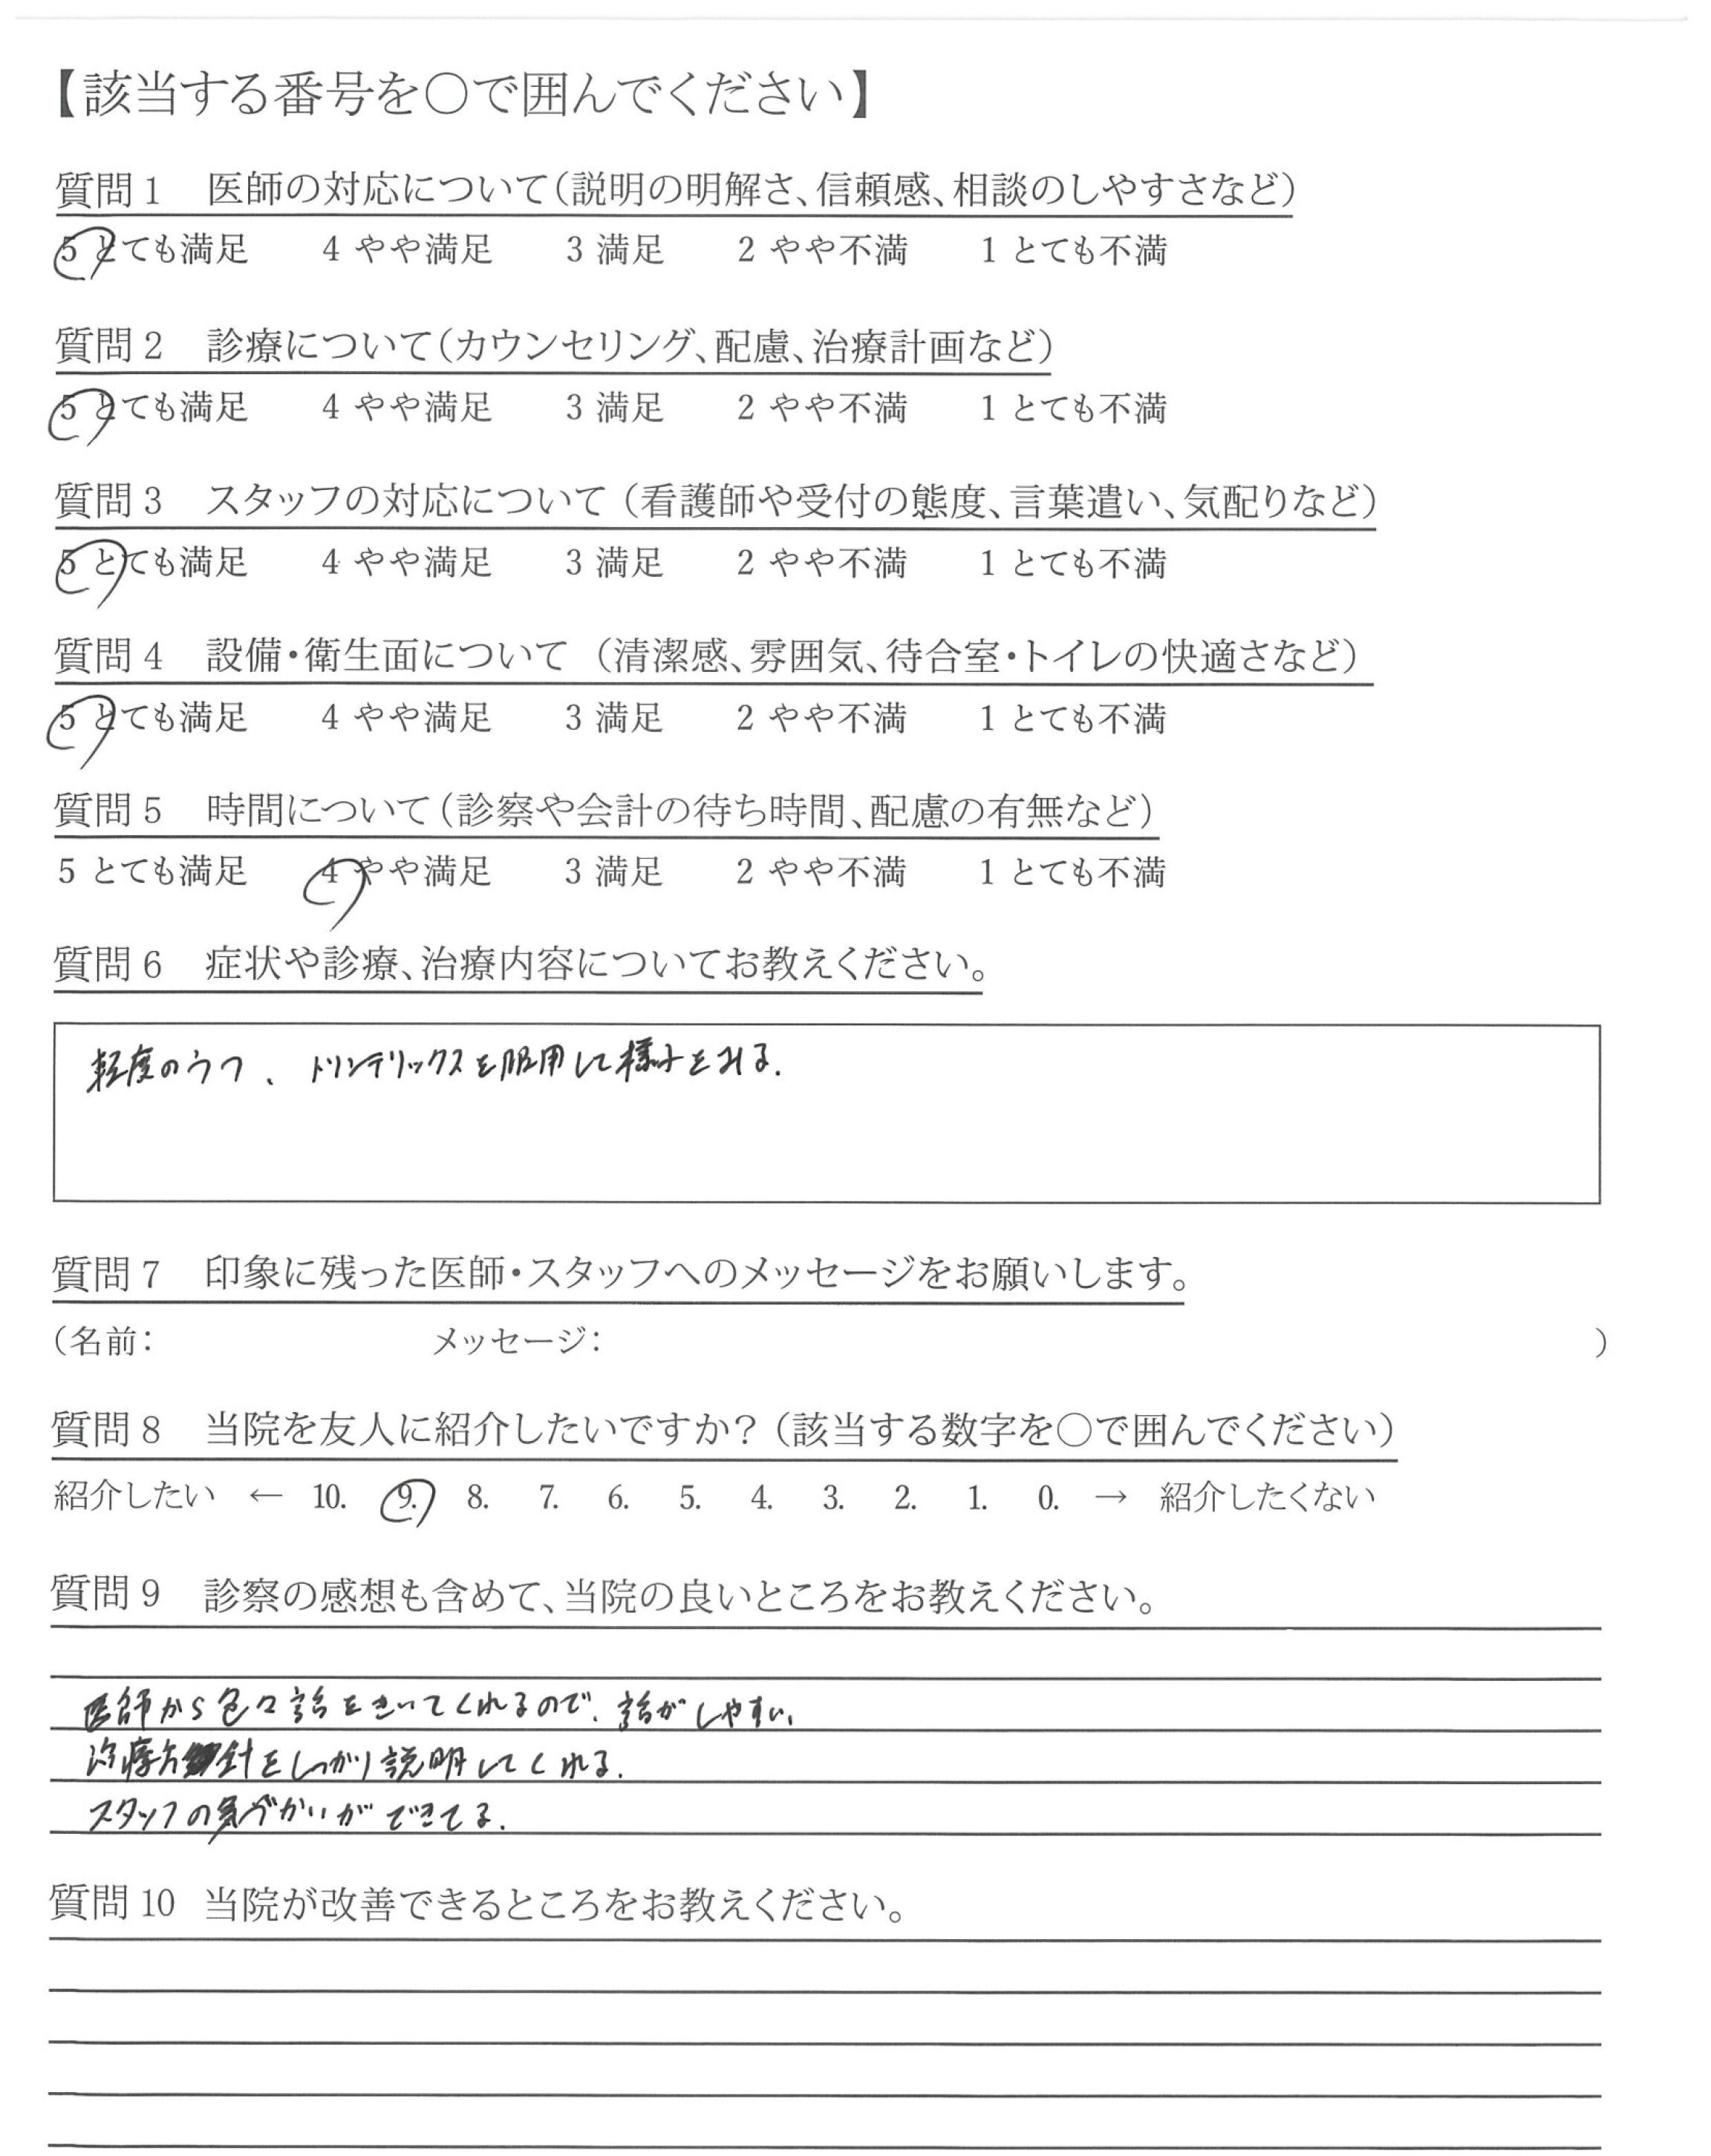 【該当する番号を〇で囲んでください】
質問1 医師の対応について(説明の明解さ、信頼感、相談のしやすさなど)
5 とても満足 4 やや満足 3 満足 2 やや不満 1 とても不満
質問2 診療について(カウンセリング、配慮、治療計画など)
5 とても満足 4 やや満足 3 満足 2 やや不満 1 とても不満
質問3 スタッフの対応について(看護師や受付の態度、言葉遣い、気配りなど)
5 とても満足 4 やや満足 3 満足 2 やや不満 1 とても不満
質問4 設備・衛生面について(清潔感、雰囲気、待合室・トイレの快適さなど)
5 とても満足 4 やや満足 3 満足 2 やや不満 1 とても不満
質問5 時間について(診察や会計の待ち時間、配慮の有無など)
5 とても満足 4 やや満足 3 満足 2 やや不満 1 とても不満
質問6 症状や診療、治療内容についてお教えください。
軽度のうつ、トリンテリックスを服用して様子をみる.
質問7 印象に残った医師・スタッフへのメッセージをお願いします。
(名前: メッセージ: )
質問8 当院を友人に紹介したいですか?(該当する数字を〇で囲んでください)
紹介したい ← 10. 9. 8. 7. 6. 5. 4. 3. 2. 1. 0. → 紹介したくない
質問9 診察の感想も含めて、当院の良いところをお教えください。
医師から色々話をきいてくれるので、話がしやすい、
治療方針をしっかり説明してくれる.
スタッフの気づかいができてる.
質問10 当院が改善できるところをお教えください。